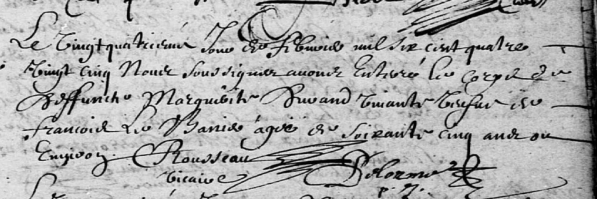 Le vingtquatriesme Jour de febvrier mil six cent quatre
vingt cinq Nous soussignes avons Enterré Le Corps de
deffuncte Marguerite vivante veufve de
francois Le aagée de soixante cinq ans ou
Environ. Rousseau
vicaire Delorme